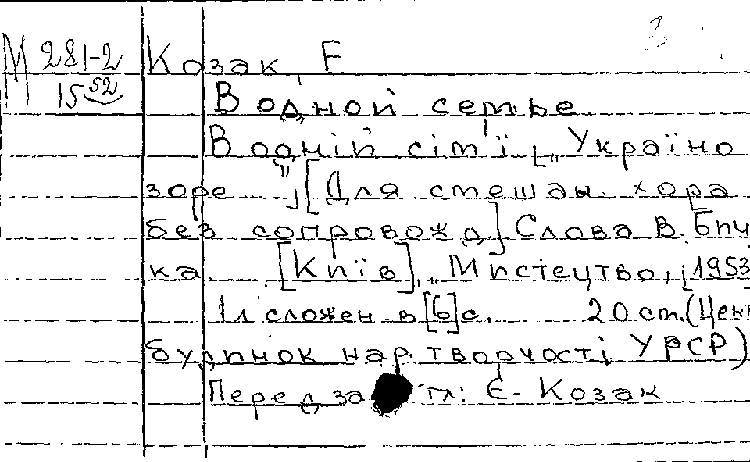 3
М 281-2 Козак, Е
15 52 В одной семье
В одній сім'ї [„Україно
зоре ..."] [Для смешан. хора
без сопровожд] Слова В. Бич
ка. [Київ], „Мистецтво, [1953
1 л сложен в [6] с. 20 ст. (Цен
будинок нар. творчості УРСР)
Перед загл: Є. Козак